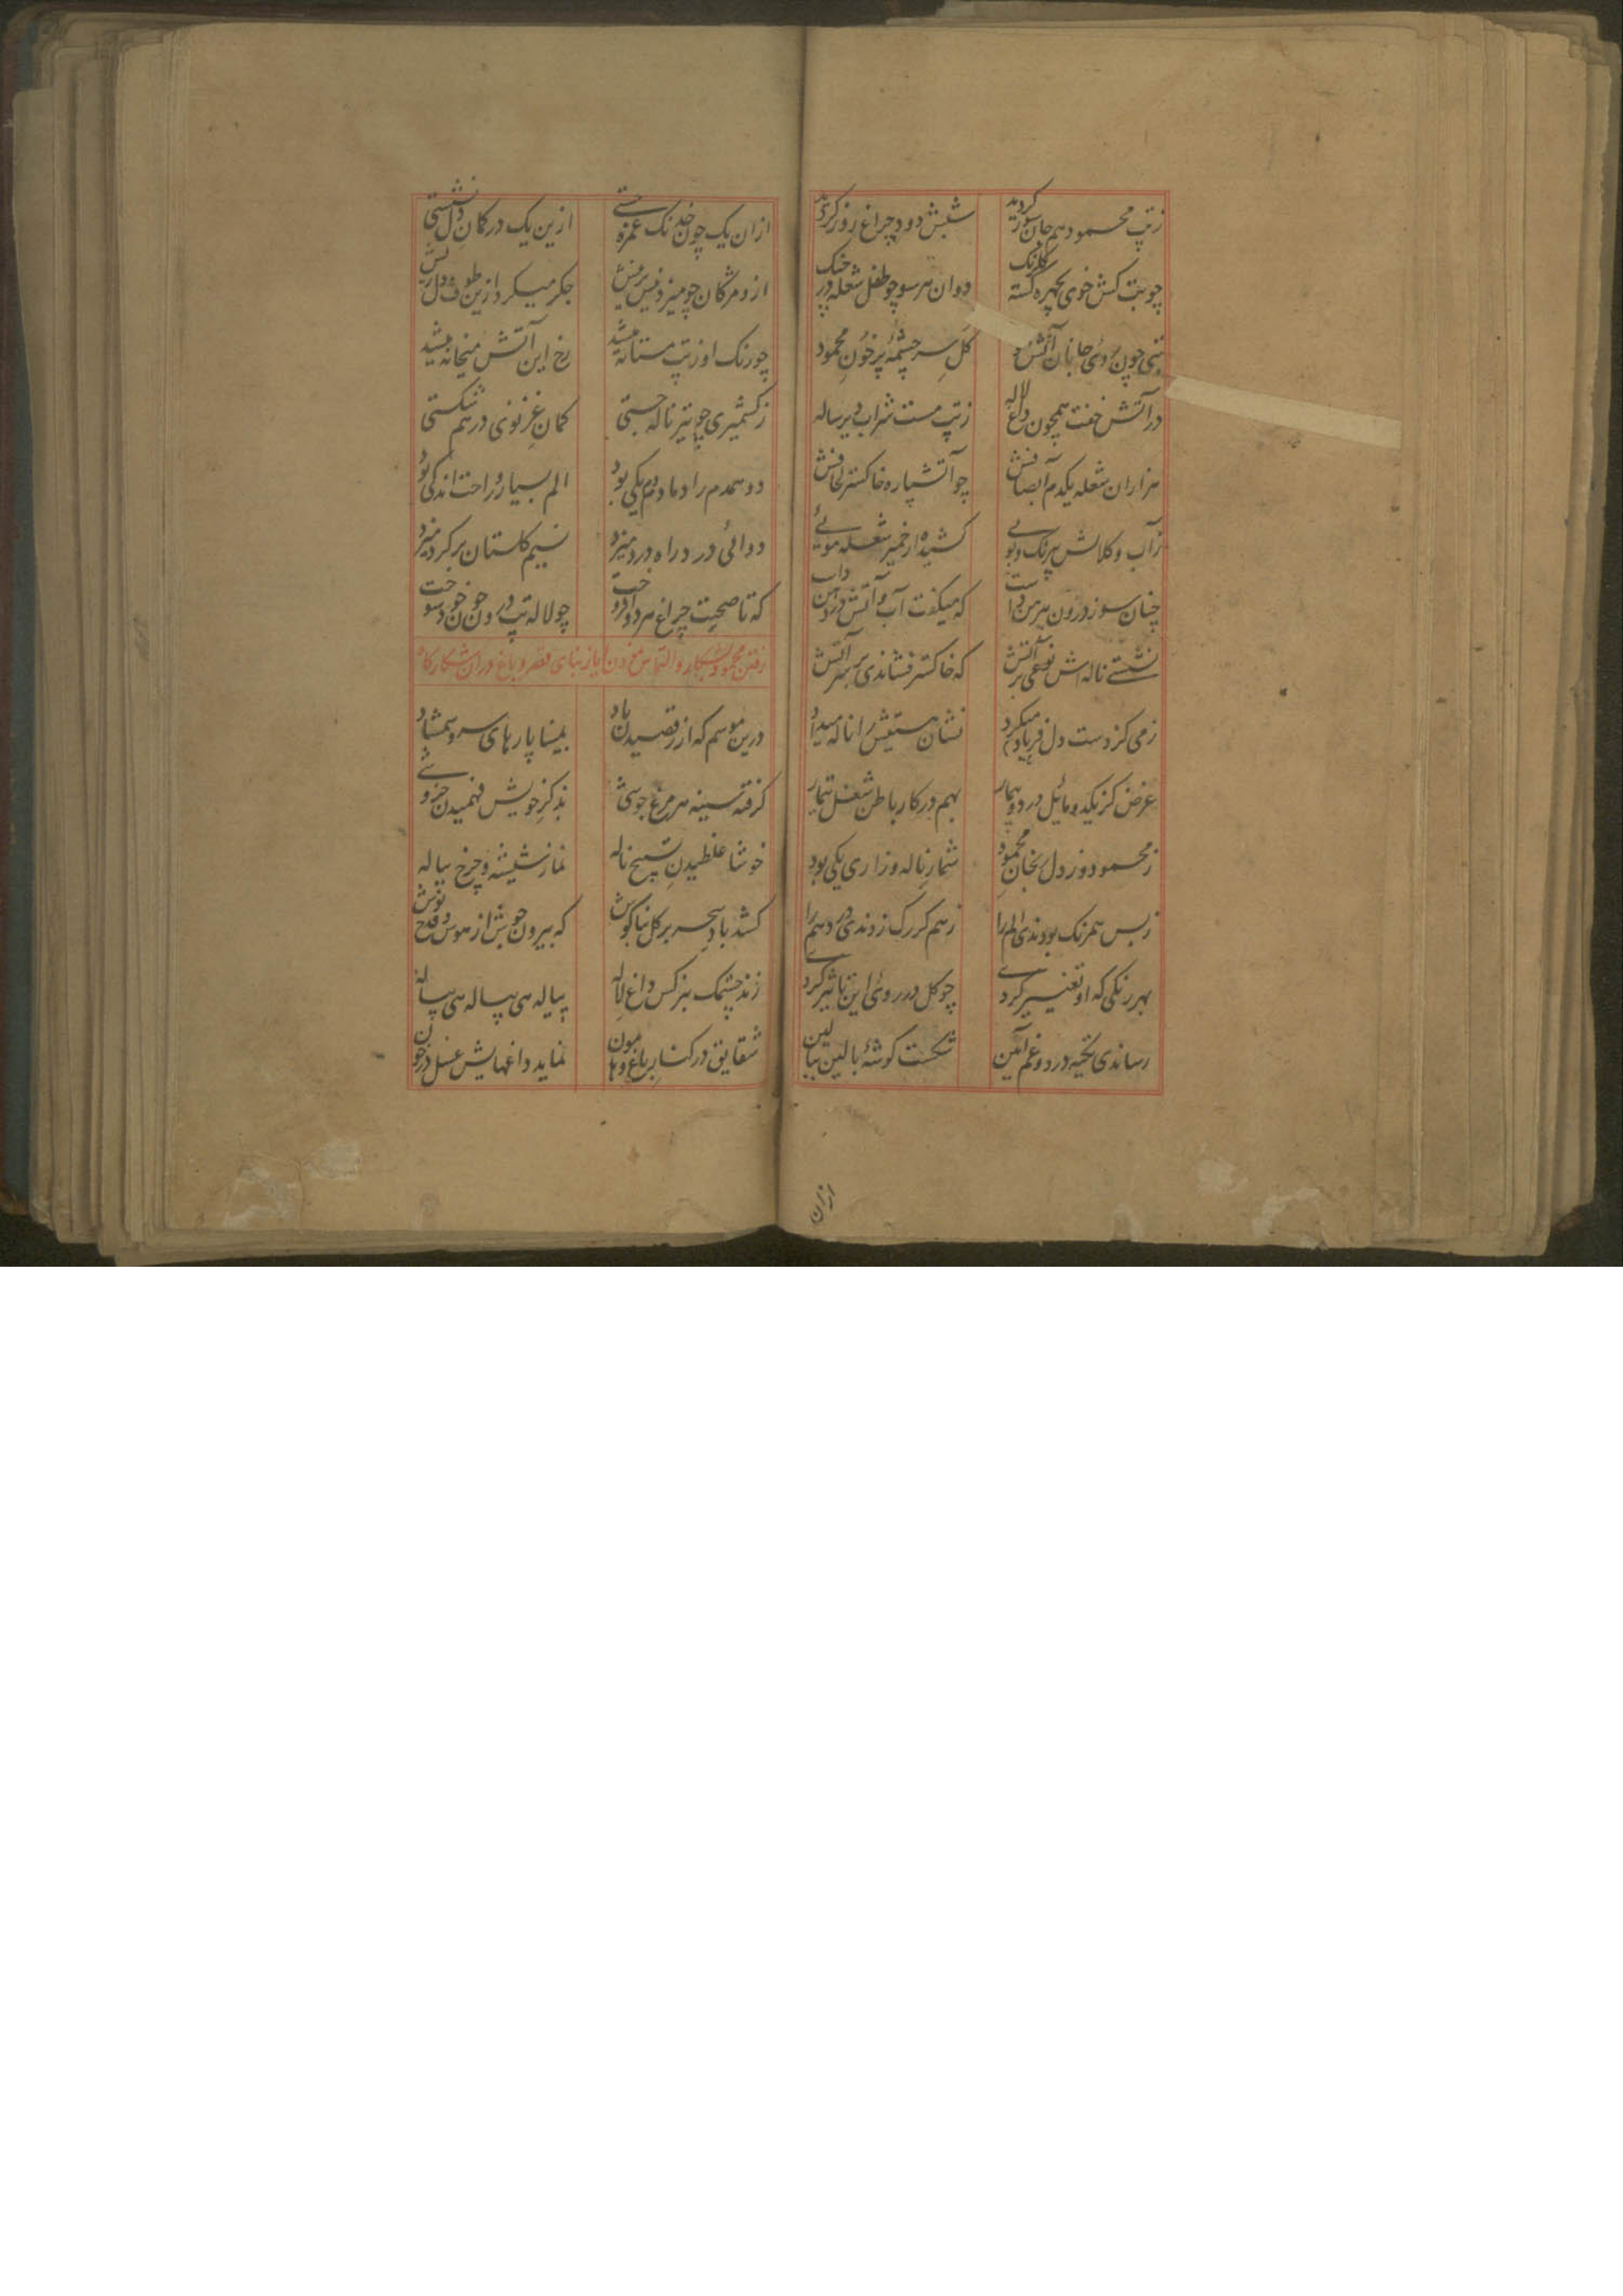 زتپ محمود هم جان سوز کردید شبش دود چراغ روز کردید
چو تب کش خوی بچهره کشته کلرنک دوان هر سو چو طفل شعله در جنک
تبی چون روی جانان آتش کل سر چشمهٔ پر خون محمود
در آتش خفت همچون داغ لاله زتپ مست شراب دیر ساله
هزاران شعله یکدم آب صافش چو آتشپاره خاکستر لحافش
زآب و کلالش پرنک و بویی کشیده از خمیر شعله مویی
چنان سوز درون پیرهن داشت که میکفت آب و آتش در دهن داشت
نشستی ناله اش نوعی بر آتش که خاکستر فشاندی بر سر آتش
زمی کز دست دل فریاد میکرد نشان هستیش را ناله میداد
غرض کز یکدو مائل درد و بیمار بهم در کار باطن شغل تیمار
زمحمود و زدل تجان محمود شمار ناله و زاری یکی بود
زبس همرنک بودندی الم را زهم کر رک زدندی درد هم را
بهر رنکی که او تغییر کردی چو کل در روی این تاثیر کردی
رساندی تکیه درد و غم آئین شکست کوشهٔ بالین ببالین
ازان
ازان یک چون خدنک غمزه جستی ازین یک در کمان دل نشستی
ازو مژکان چو میزد نیش بر نیش جکر میکرد ازین طوف دل ریش
چو رنک او زتپ مستانه میشد رخ این آتش میخانه میشد
زکشمیری چو تیر ناله جستی کمان غزنوی در هم شکستی
دو همدم را دمادم دم یکی بود الم بسیار و راحت اندکی بود
دوائی در دراه درد میزد نسیم کلستان بر کرد میزد
که تا صحت چراغ هر دو افروخت چو لاله تپ درون خون خود سوخت
رفتن محمود بشکار و التماس نمودن ایاز بنای قصر و باغ در ان شکارکاه
درین موسم که از رقصیدن باد بمینا پارهای سرو شمشاد
کرفته سینه هر مرغ جوشی بذکر خویش فهمیدن خروشی
خوشا غلطیدن تسبیح ناله نماز شیشه و چرخ پیاله
کشد باد سحر بر کل بناکوش که بیرون جوش از هوش و قدح نوش
زند چشمک بنرکس داغ لاله پیاله هی پیاله هی پیاله
شقایق در کنار باغ و هامون نماید داغهایش غسل در خون